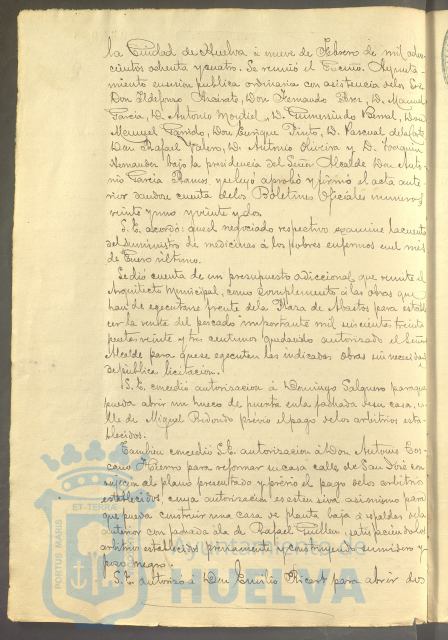 la Ciudad de Huelva á nueve de Febrero de mil ocho-
cientos ochenta y cuatro. Se reunió el Excmo. Ayunta-
miento en sesion publica ordinaria con asistencia de los Sres.
Don Ildefonso Don Fernando D. Manuel
Garcia, D. Antonio Montiel, D. Gumersindo Bernal, Don
Manuel Garrido, Don Enrique Pinto, D. Pascual
Don Rafael Valero, D. Antonio Oliveira y D. Joaquin
Hernandez bajo la presidencia del Señor Alcalde Don Anto-
nio Garcia Ramos y se leyó aprobó y firmó el acta ante-
rior dandose cuenta de los Boletines Oficiales numeros
veinte y uno y veinte y dos.
S. E. acordó: que el negociado respectivo examine la cuenta
del suministro de medicinas á los pobres enfermos en el mes
de Enero último.
Se dió cuenta de un presupuesto adiccional que remite el
Arquitecto municipal, como complemento á las obras que
han de ejecutarse frente de la Plaza de Abastos para estable-
cer la venta del pescado importante mil seiscientas treinta
pesetas veinte y tres centimos quedando autorizado el Señor
Alcalde para que se ejecuten las indicadas obras sin necesidad
de publica licitacion.
S. E. concedió autorizacion á Domingo Salguero para que
pueda abrir un hueco de puerta en la fachada de su casa, ca-
lle de Miguel Redondo prévio el pago de los arbitrios esta-
blecidos.
Tambien concedió S. E. autorizacion á Don Antonio
Hierro para reformar su casa calle de San José con
sujecion al plano presentado y prévio el pago de los arbitrios
establecidos, cuya autorizacion es estensiva asimismo para
que pueda construir una casa de planta baja á espaldas de la
anterior con fachada á la de Rafael Guillen, satisfaciendo los
arbitrios establecidos previamente y construyendo sumidero y
pozo negro.
S. E. autorizó á Don Emilio Ricart para abrir dos
PORTUS MARIS
ET TERRAE
Ayuntamiento de
HUELVA